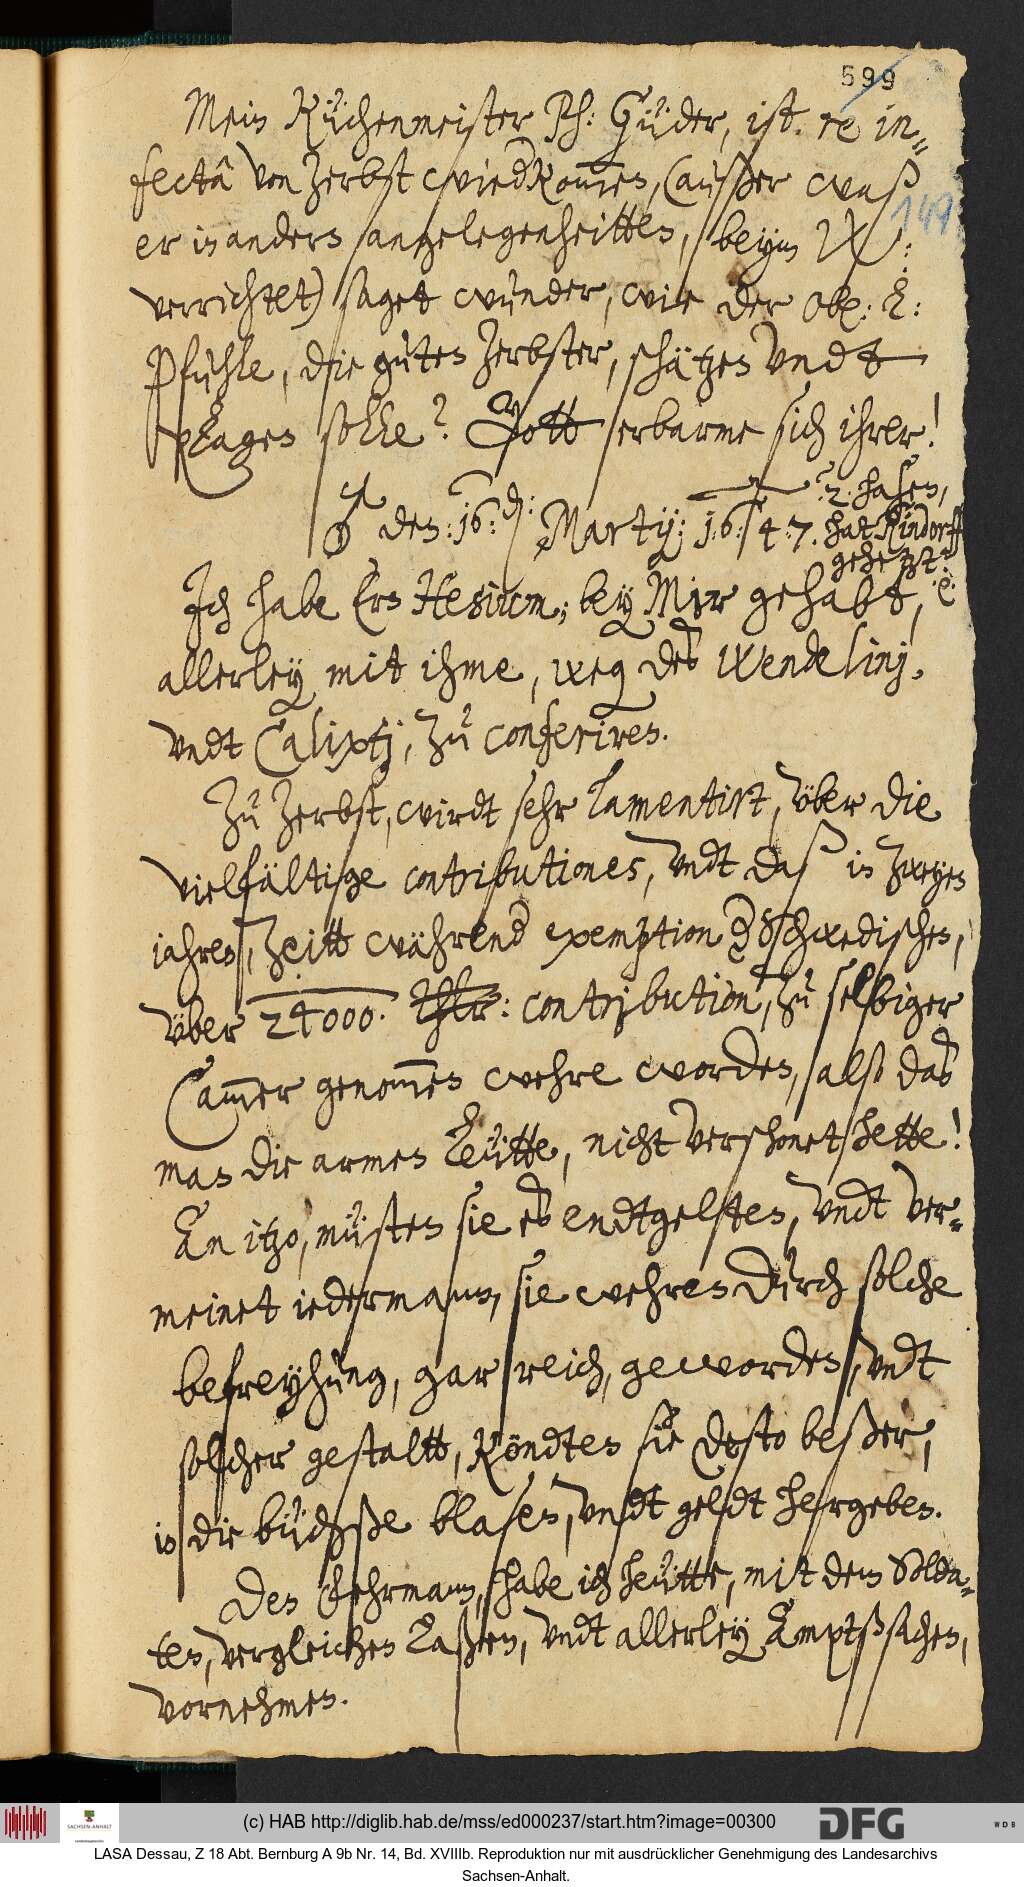 599
Mein Küchenmeister Ph: Güder, ist re in-
fectâ von Zerbst wiedkommen, (außer waß
149
er in anders angelegenheitten, beym
verrichtet) saget wunder, wie der Obr: L:
Pfuhle, die guten Zerbster, schätzen vndt
plagen solle? Gott erbarme sich ihrer!
♂ den: 16. d: Martij: 1647.
2. hasen,
hat Rindorff
gehetzt.
Ich habe Ern Hesium; bey Mir gehabt,
allerley mit ihme, weg des Wendelinj,
vndt Calixtj, zu conferiren.
Zu Zerbst, wirdt sehr lamentirt, vber die
vielfältige contributiones, vndt daß in zweyen
jahren, Zeitt während exemption der Schwedischen,
vber 24000. Thlr: contribution, zu selbiger
Cammer genommen wehre worden, also das
man die armen Leütte, nicht verschonet hette!
An itzo, müsten sie es endtgelten, vndt ver-
meinet iederman, sie wehren durch solche
befreyhung, gar reich, geworden, vndt
solcher gestaltt, köndten sie desto beßer,
in die büchße blasen, vndt geldt hergeben.
Den Gehrmann, habe ich heütte, mit dem Solda-
ten, vergleichen laßen, vndt allerley Amptßsachen,
vornehmen.
(c) HAB http://diglib.hab.de/mss/ed000237/start.htm?image=00300
SACHSEN-ANHALT
DFG
WDB
LASA Dessau, Z 18 Abt. Bernburg A 9b Nr. 14, Bd. XVIIIb. Reproduktion nur mit ausdrücklicher Genehmigung des Landesarchivs
Sachsen-Anhalt.